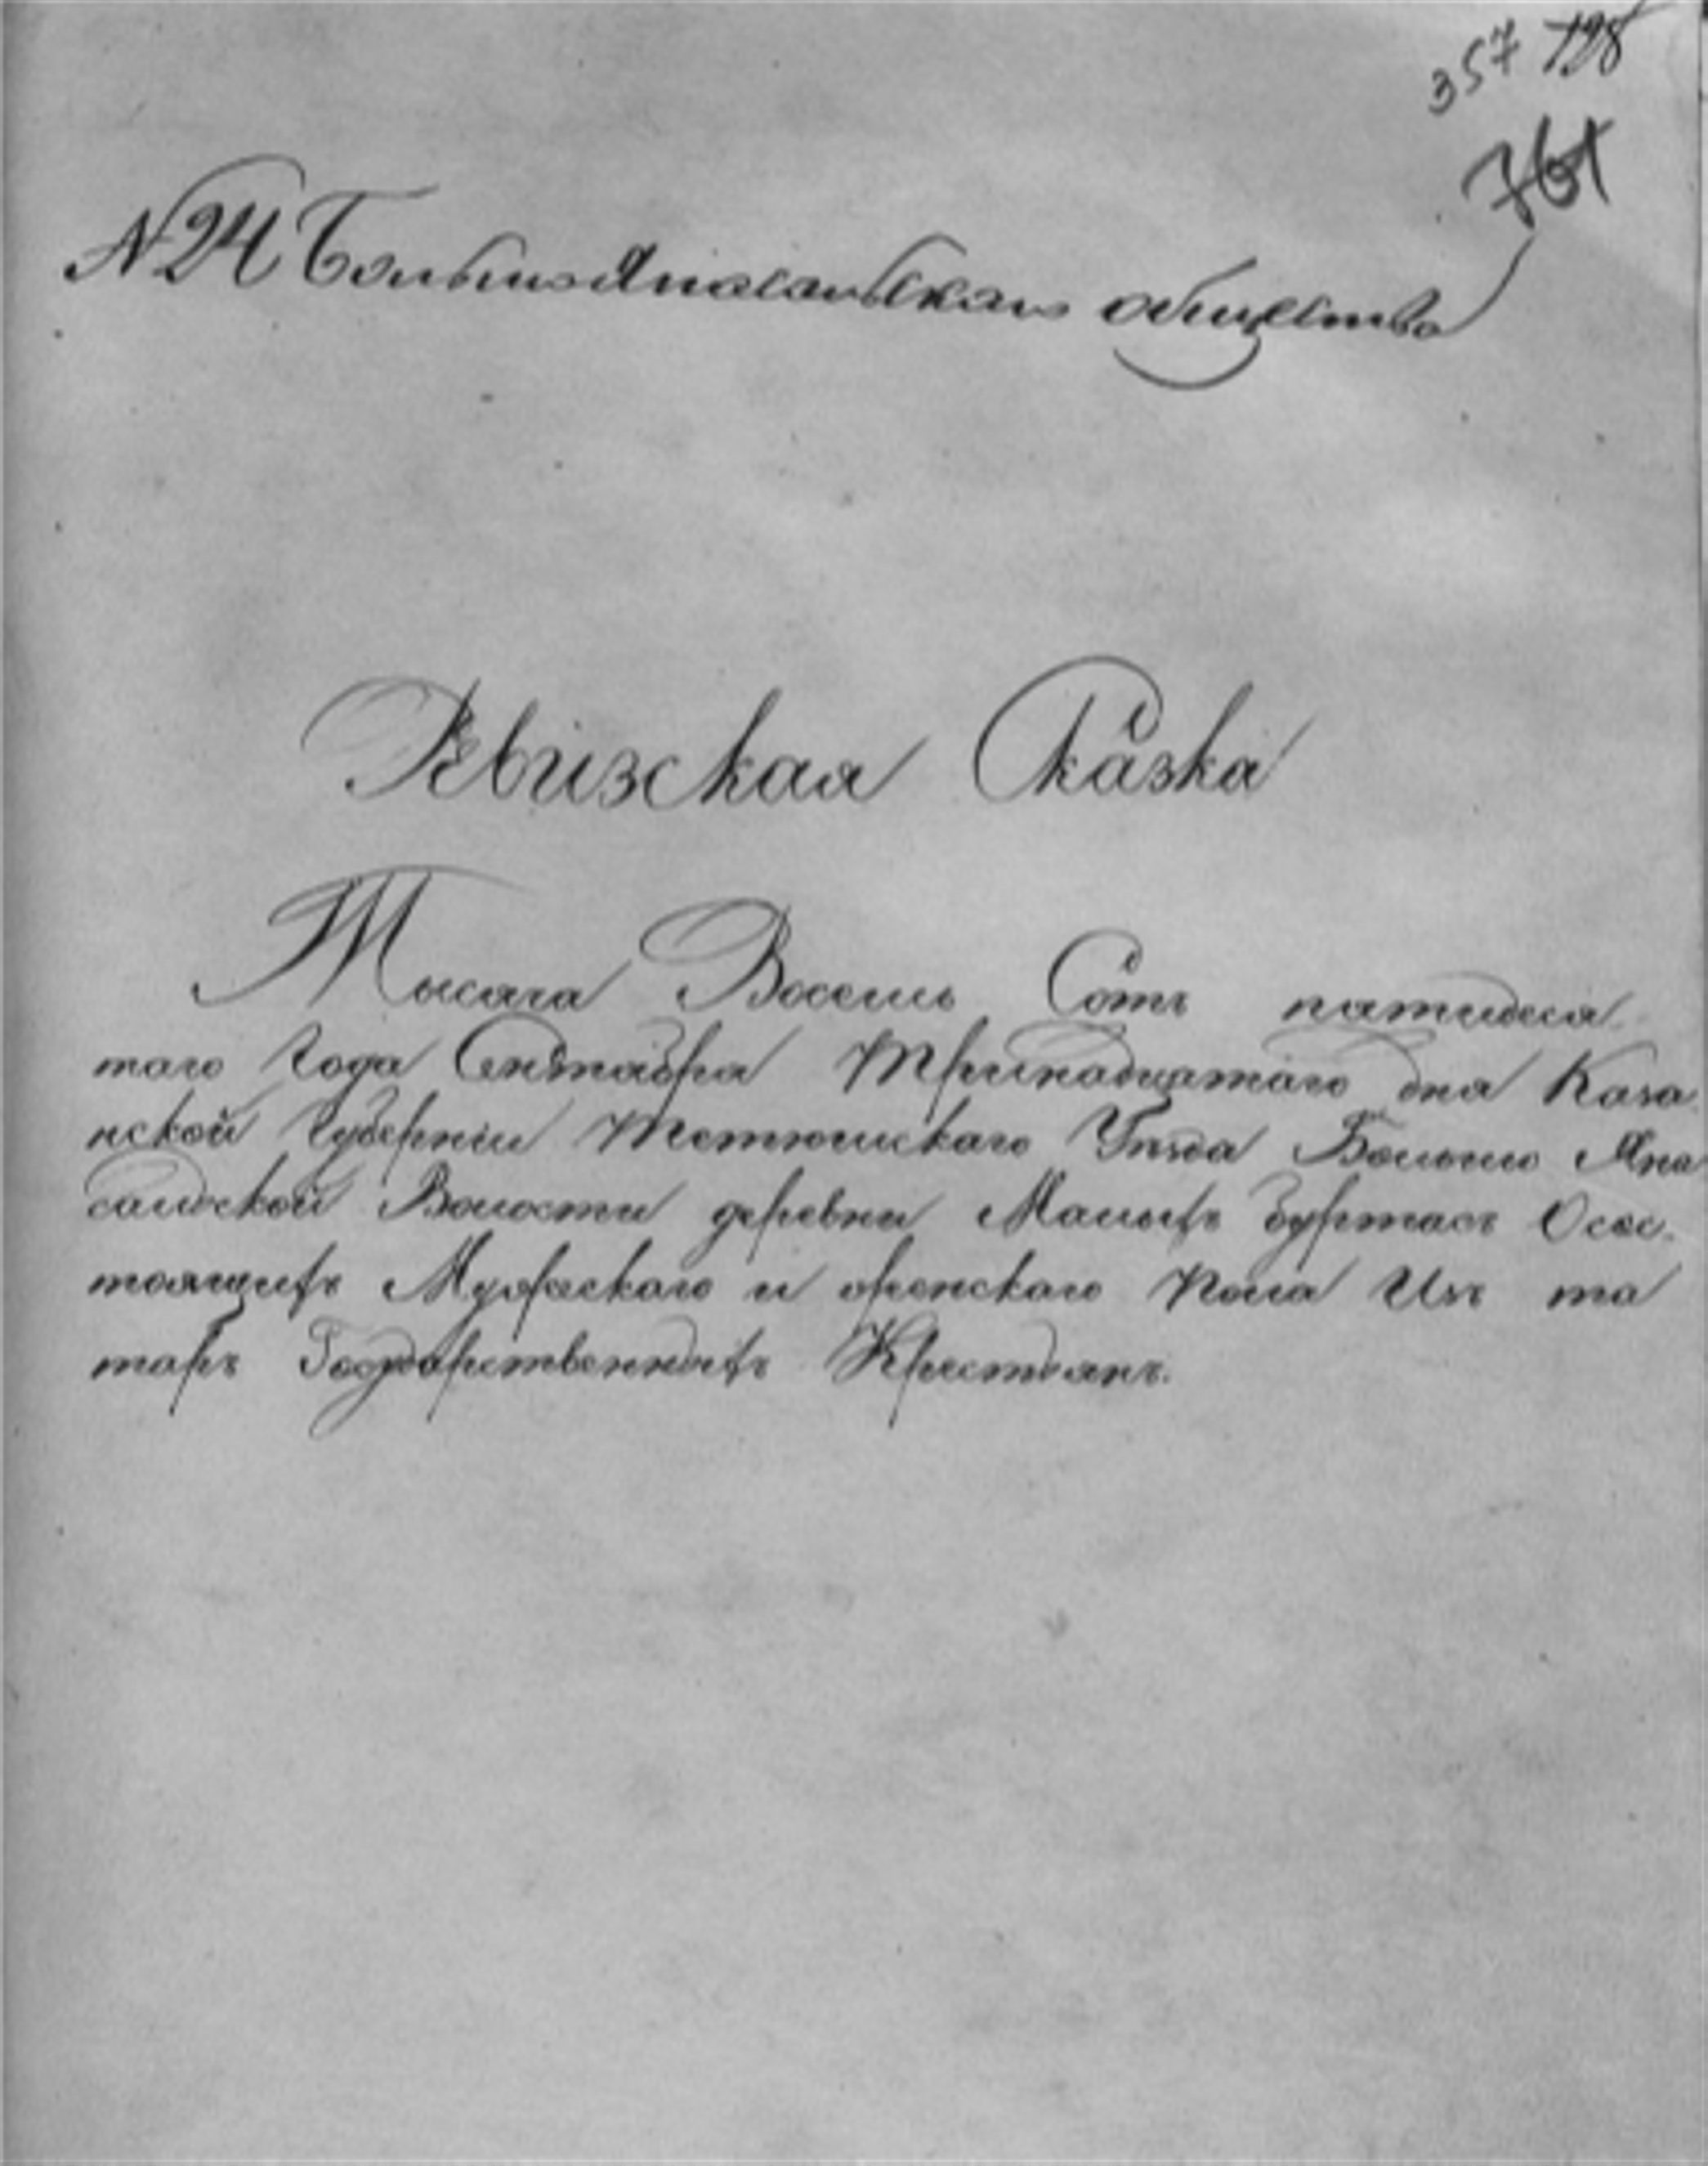 357 198
761
№ 24 БольшеЯпасальскаго общества
Ревизская Сказка
Тысяча Восемь Сотъ пятидеся
таго Года Сентября Тринадцатаго дня Каза
нской Губерніи Тетюшскаго Уѣзда Больше Япа
сальской Волости деревни Малыхъ Буртасъ Осос
тоящихъ Мужескаго и женскаго пола Изъ та
таръ Государственныхъ Крестьянъ.